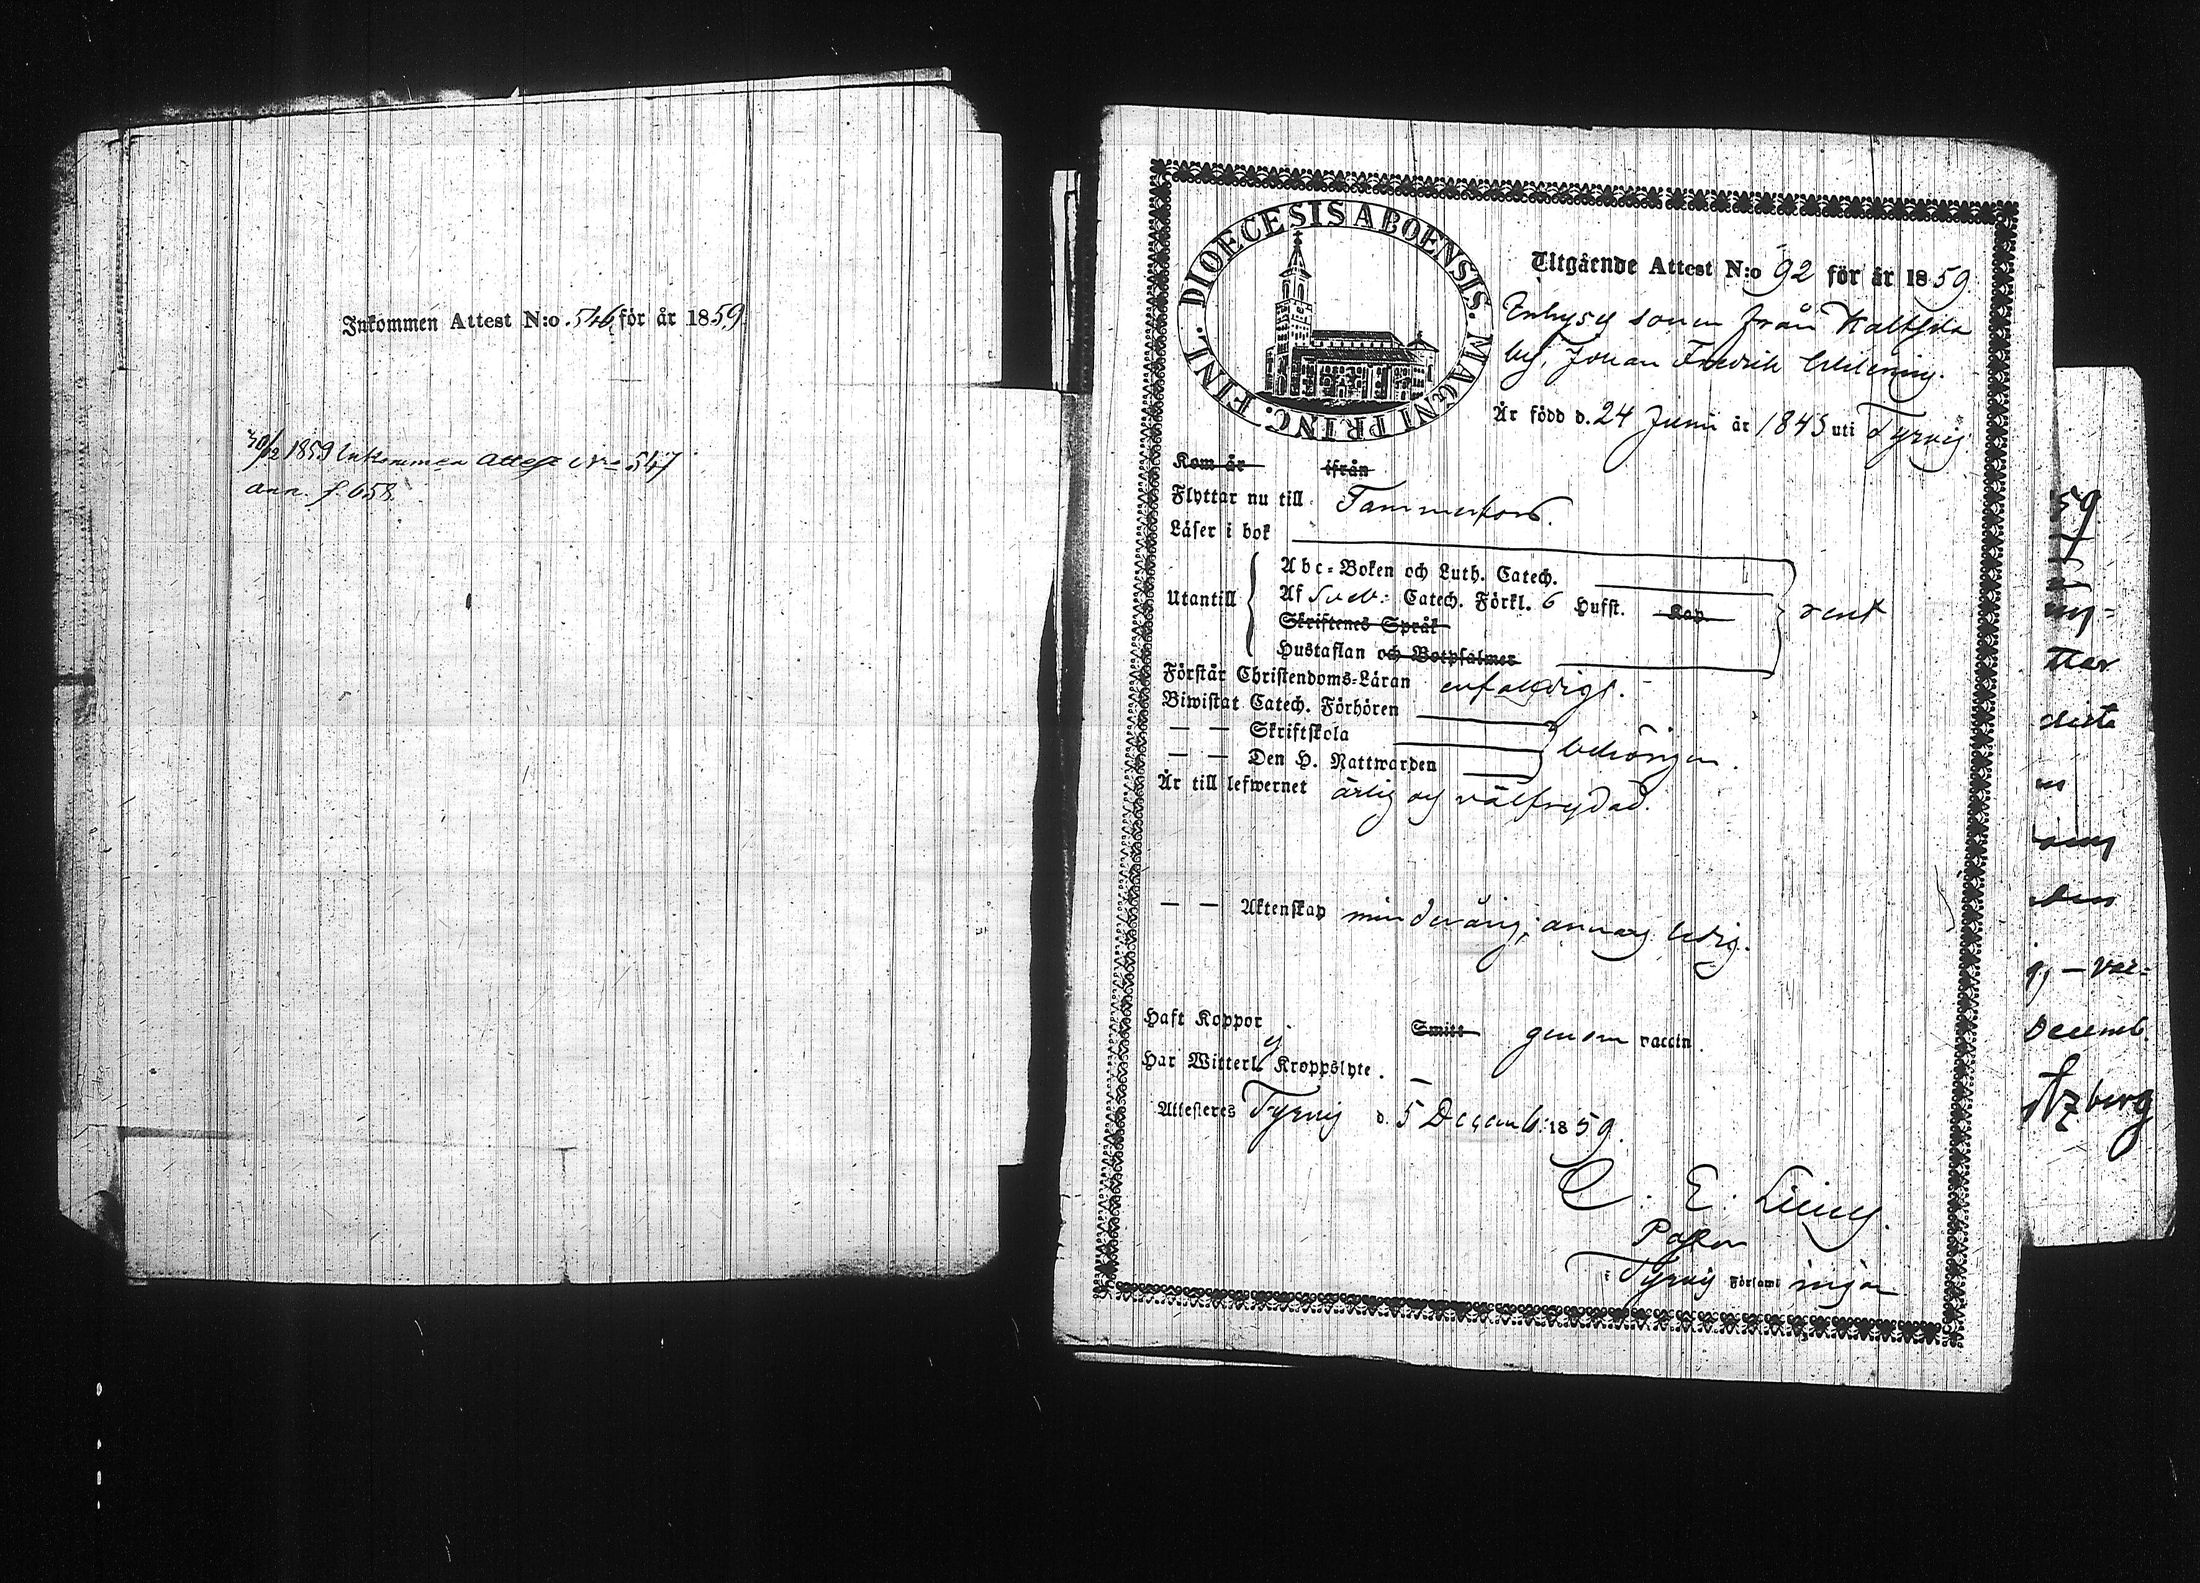 Inkommen Attest N:o 546 för år 1859
30/12 1859 Inkommen Attest No 547
ann. f. 658.
DIOECESIS ABOENSIS. MAGNI PRINC. FINL.
Utgående Attest N:o 92 för år 1859.
sonen från Kaltsila
by, Johan Fredrik
Är född d. 24 Juni år 1843 uti Tyrvis
Kom år ifrån
Flyttar nu till Tammerfors.
Läser i bok
Abc-Boken och Luth. Catech.
Utantill Af Sveb: Catech. Förkl. 6 Hufst. Kap. rent
Skriftenes Språk
Hustaflan och Botpsalmer
Förstår Christendoms-Läran enfaldigt.
Biwistat Catech. Förhören
— — Skriftskola behörigen.
— — Den H. Nattwarden
Är till lefwernet ärlig och välfrejdad.
— — Äktenskap minderårig; annars ledig.
Haft Koppor Smitt genom vaccin.
Har Witterl. ej Kroppslyte. —
Attesteres Tyrvis d. 5 Decemb: 1859.
C. E.
Pastor
i Tyrvis Församlingar
59
ttar
decemb.
tzberg